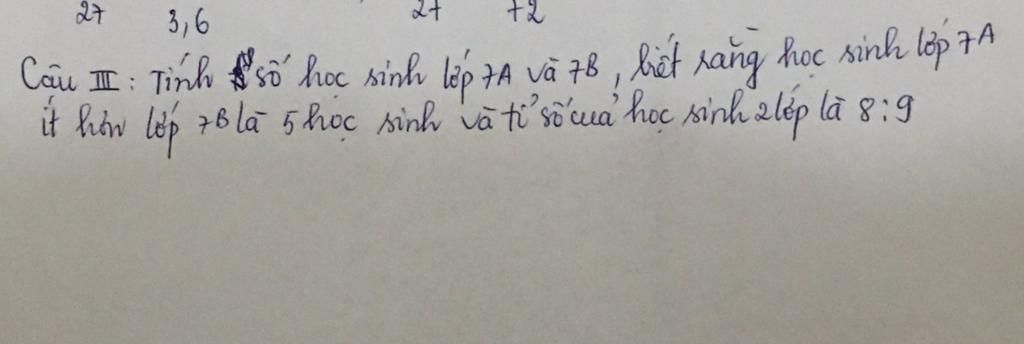 27 3,6 27 72
Câu III: Tính số học sinh lớp 7A và 7B, biết rằng học sinh lớp 7A
ít hơn lớp 7B là 5 học sinh và tỉ số của học sinh 2 lớp là 8:9